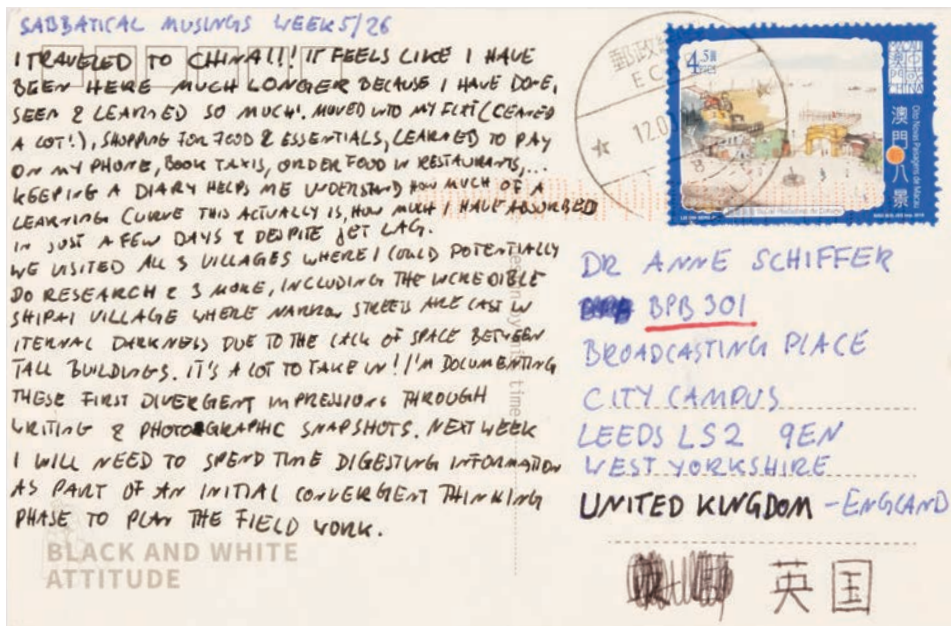 SABBATICAL MUSINGS WEEK 5/26
I TRAVELED TO CHINA!!! IT FEELS LIKE I HAVE
BEEN HERE MUCH LONGER BECAUSE I HAVE DONE,
SEEN & LEARNED SO MUCH! MOVED INTO MY FLAT (CLEANED
A LOT!), SHOPPING FOR FOOD & ESSENTIALS, LEARNED TO PAY
ON MY PHONE, BOOK TAXIS, ORDER FOOD IN RESTAURANTS,...
KEEPING A DIARY HELPS ME UNDERSTAND HOW MUCH OF A
LEARNING CURVE THIS ACTUALLY IS, HOW MUCH I HAVE ABSORBED
IN JUST A FEW DAYS & DESPITE JET LAG.
WE VISITED ALL 3 VILLAGES WHERE I COULD POTENTIALLY
DO RESEARCH & 3 MORE, INCLUDING THE INCREDIBLE
SHIPAI VILLAGE WHERE NARROW STREETS ARE CAST IN
ITERNAL DARKNESS DUE TO THE LACK OF SPACE BETWEEN
TALL BUILDINGS. IT'S A LOT TO TAKE IN! I'M DOCUMENTING
THESE FIRST DIVERGENT IMPRESSIONS THROUGH
WRITING & PHOTOGRAPHIC SNAPSHOTS. NEXT WEEK
I WILL NEED TO SPEND TIME DIGESTING INFORMATION
AS PART OF AN INITIAL CONVERGENT THINKING
PHASE TO PLAN THE FIELD WORK.
BLACK AND WHITE
ATTITUDE
time
郵政
4.50
MACAU
CHINA
中國
澳門
澳門八景
Oito Novas Paisagens de Macau
DR ANNE SCHIFFER
BPB 301
BROADCASTING PLACE
CITY CAMPUS
LEEDS LS2 9EN
WEST YORKSHIRE
UNITED KINGDOM - ENGLAND
英国